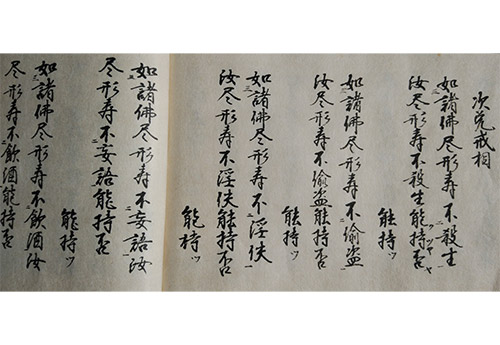 次兑戒相
如諸佛尽形寿不殺生
汝尽形寿不殺生能持否
能持ツ
如諸佛尽形寿不偸盗
汝尽形寿不偸盗能持否
能持ツ
如諸佛尽形寿不淫佚
汝尽形寿不淫佚能持否
能持ツ
如諸佛尽形寿不妄語汝
尽形寿不妄語能持否
能持ツ
如諸佛尽形寿不飲酒汝
尽形寿不飲酒能持否